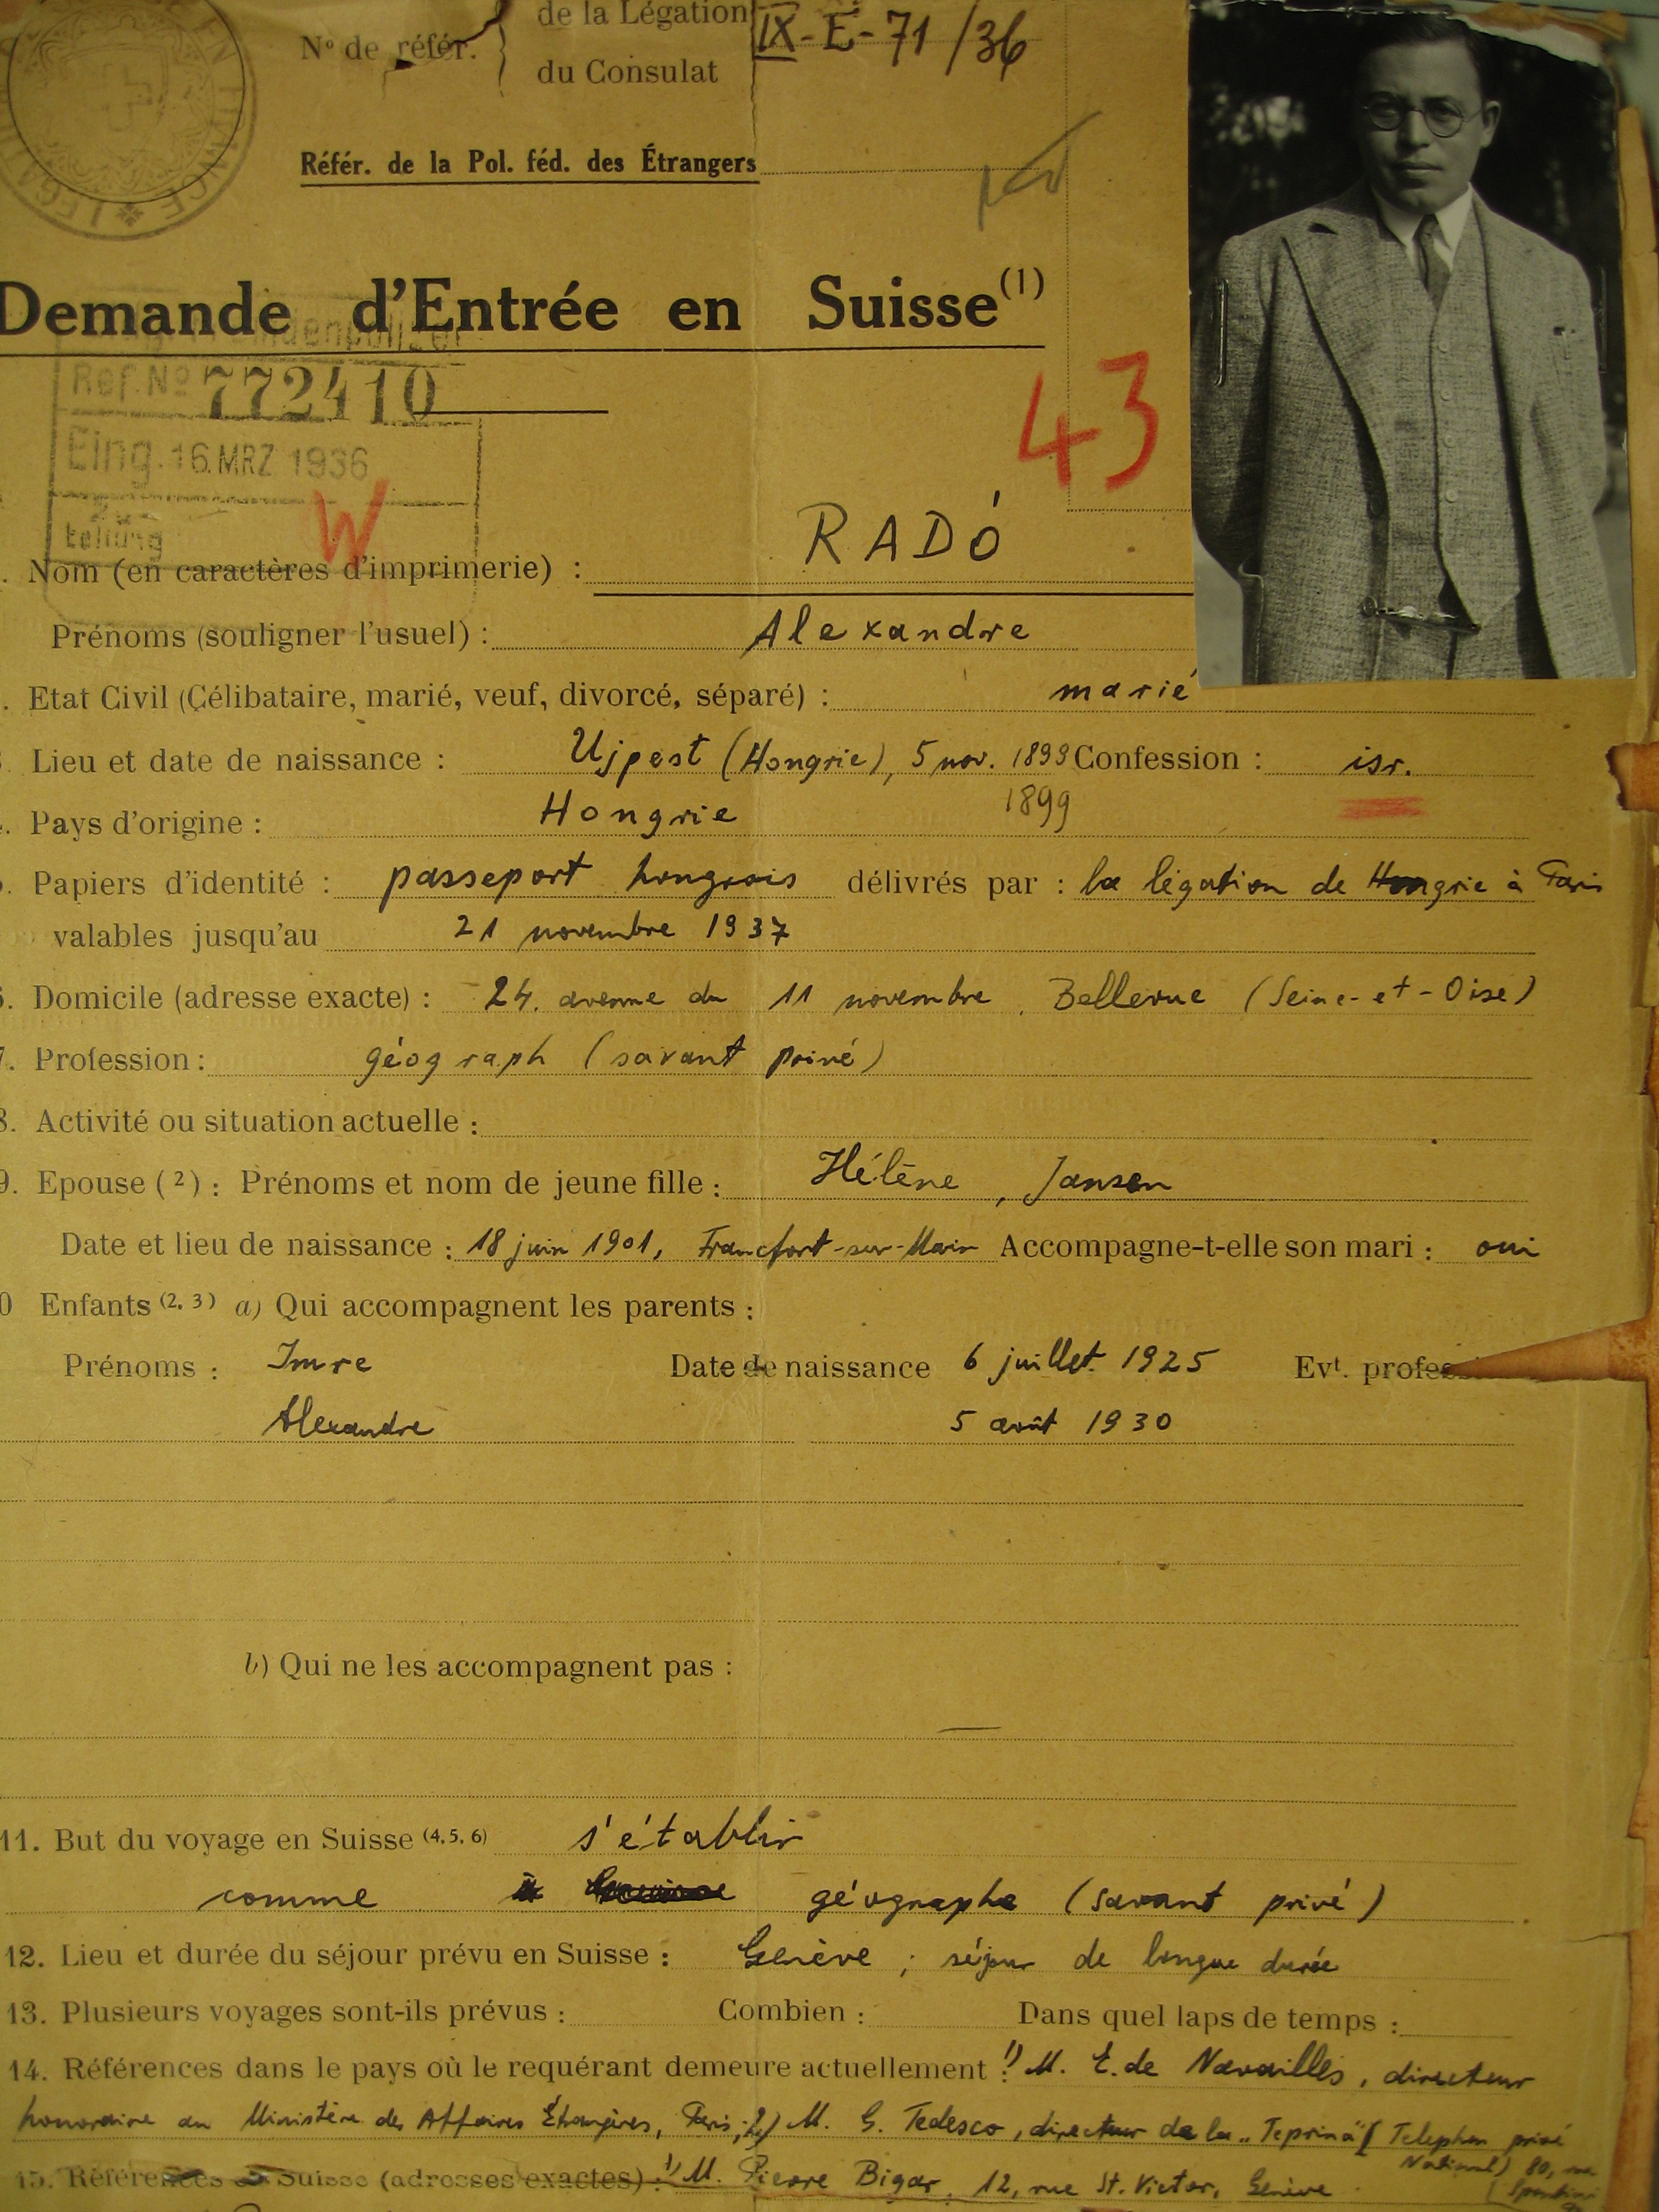 de la Légation
IX-E-71/36
Nº de référ.
du Consulat
Référ. de la Pol. féd. des Étrangers
Demande d'Entrée en Suisse(1)
Ref. Nº 772410
43
Eing. 16. MRZ 1936
W
. Nom (en caractères d'imprimerie) : RADÓ
Prénoms (souligner l'usuel) : Alexandre
. Etat Civil (Célibataire, marié, veuf, divorcé, séparé) : marié
Lieu et date de naissance : Ujpest (Hongrie), 5 nov. 1899 Confession : isr.
1899
. Pays d'origine : Hongrie
. Papiers d'identité : passeport hongrois délivrés par : la légation de Hongrie à Paris
valables jusqu'au 21 novembre 1937
. Domicile (adresse exacte) : 24. avenue du 11 novembre, Bellevue (Seine-et-Oise)
7. Profession : géograph (savant privé)
8. Activité ou situation actuelle :
9. Epouse (2) : Prénoms et nom de jeune fille : Hélène, Jansen
Date et lieu de naissance : 18 juin 1901, Francfort-sur-Main Accompagne-t-elle son mari : oui
0 Enfants (2, 3) a) Qui accompagnent les parents :
Prénoms : Imre Date de naissance 6 juillet 1925 Evt.
Alexandre 5 août 1930
b) Qui ne les accompagnent pas :
11. But du voyage en Suisse (4, 5, 6) s'établir
comme à géographe (savant privé)
12. Lieu et durée du séjour prévu en Suisse : Genève ; séjour de longue durée
13. Plusieurs voyages sont-ils prévus : Combien : Dans quel laps de temps :
14. Références dans le pays où le requérant demeure actuellement : 1) M. E. de Navailles, directeur
honoraire au Ministère des Affaires Étrangères, Paris; 2) M. G. Tedesco, directeur de la „Teprina" (Telephon privé
National) 80, rue
15. Références en Suisse (adresses exactes) : 1) M. Pierre Bigar, 12, rue St. Victor, Genève
Spontini